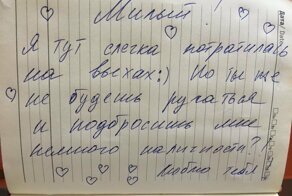 Милый!
Я тут слегка потратилась
на выхах:) Но ты же
не будешь ругаться
и подбросишь мне
немного наличности?
Люблю тебя